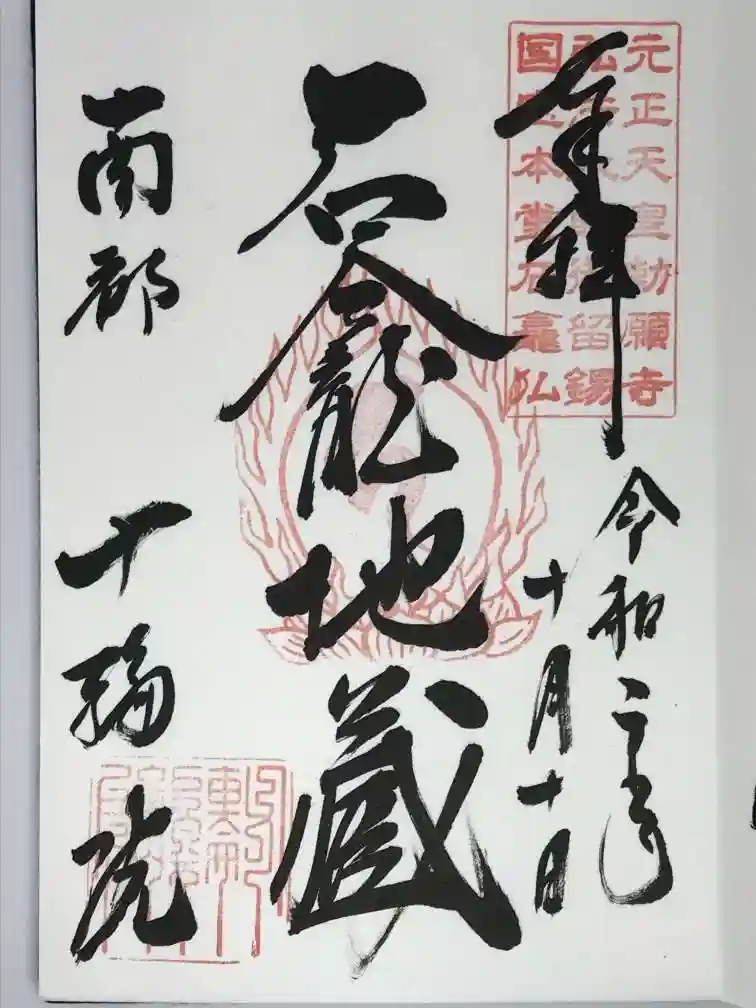 元正天皇勅願寺
弘法大師留錫
国宝本堂石龕仏
奉拝
令和二年
十月十日
石龕地蔵
南都 十輪院